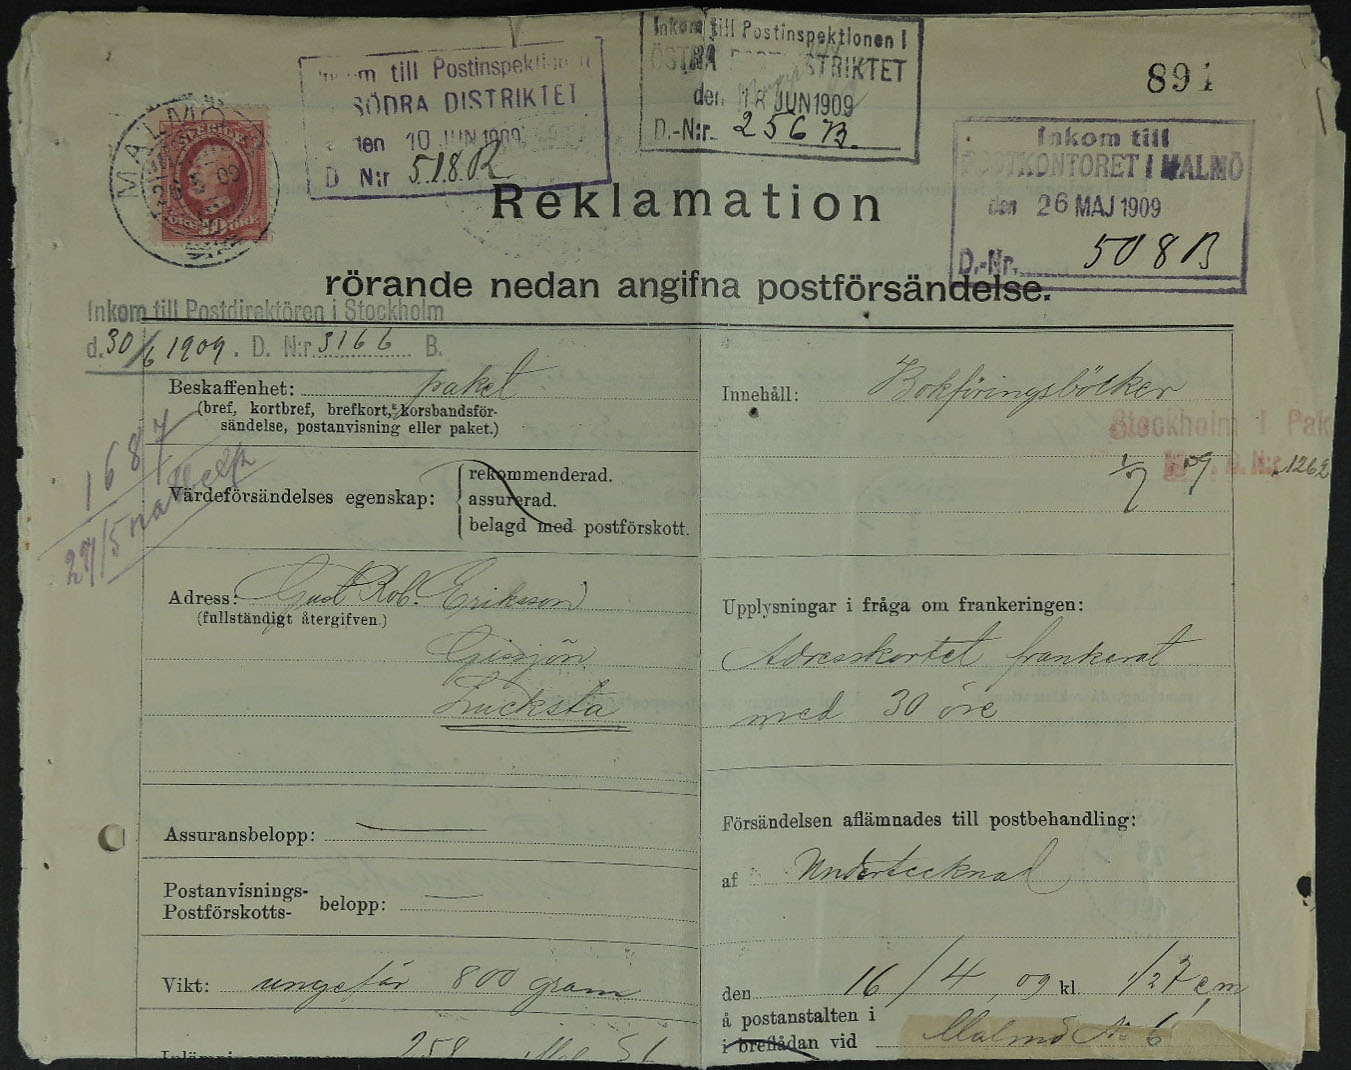 Inkom till Postinspektionen I
ÖSTRA DISTRIKTET
den 18 JUN 1909
D.-N:r. 256 B.
till Postinspektionen
SÖDRA DISTRIKTET
den 10 JUN 1909
D N:r 518 B
891
MALMÖ
SVERIGE
Inkom till
POSTKONTORET I MALMÖ
den 26 MAJ 1909
D.-Nr. 508 B
Reklamation
rörande nedan angifna postförsändelse.
Inkom till Postdirektören i Stockholm
d. 30/6 1909. D. N:r 3166 B.
Beskaffenhet: paket
(bref, kortbref, brefkort, korsbandsför-
sändelse, postanvisning eller paket.)
1687
27/5
Värdeförsändelses egenskap:
rekommenderad.
assurerad.
belagd med postförskott.
Adress: Gust Rob. Eriksson
(fullständigt återgifven.)
Gissjön
Lucksta
Assuransbelopp:
Postanvisnings-
Postförskotts- belopp:
Vikt: ungefär 800 gram
258
Innehåll: Bokföringsböcker
Stockholm 1 Pak
09 D. N:r 1262
Upplysningar i fråga om frankeringen:
Adresskortet frankerat
med 30 öre
Försändelsen aflämnades till postbehandling:
af Undertecknad
den 16/4, 09 kl. 1/2 7 em
å postanstalten i
i breflådan vid Malmö No 6